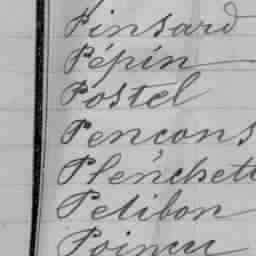 Pinsard
Pépin
Postel
Pençons
Plenchett
Petibon